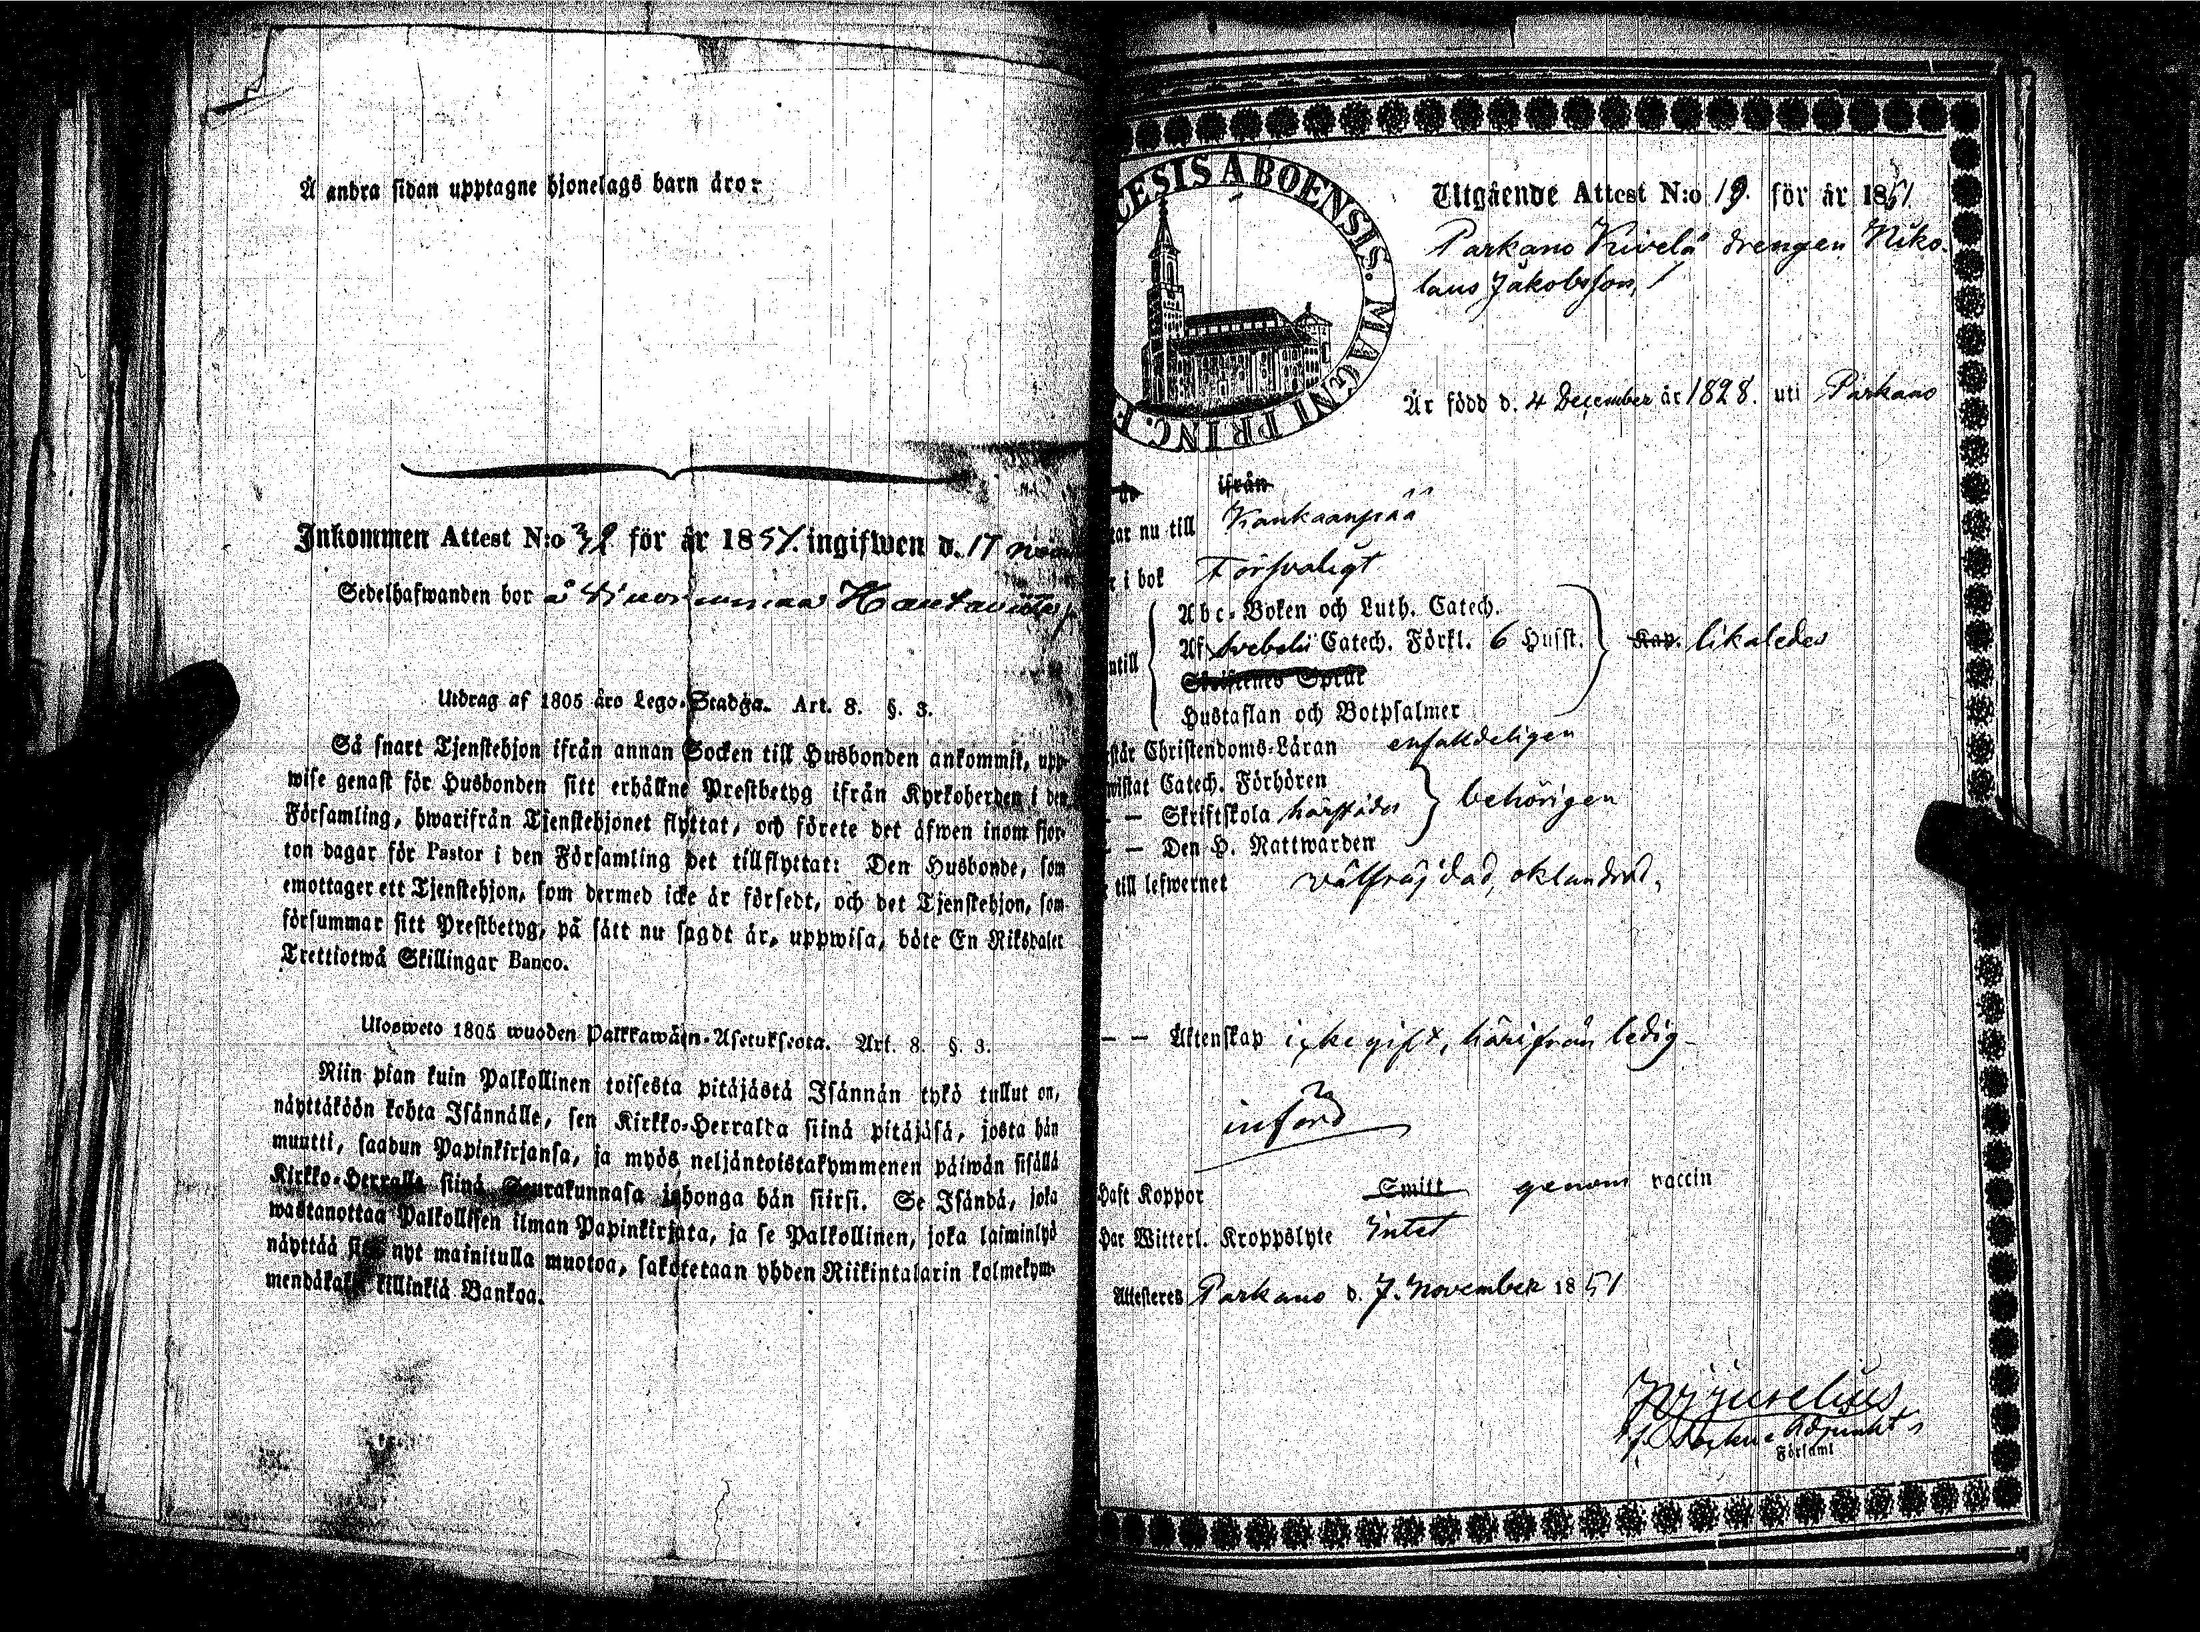 Å andra sidan upptagne hjonelags barn äro:
Inkommen Attest N:o 32 för år 1851. ingifwen d. 17
Sedelhafwanden bor å
Utdrag af 1805 års Lego-Stadga. Art. 8. §. 3.
Så snart Tjenstehjon ifrån annan Socken till Husbonden ankommit, upp-
wise genast för Husbonden sitt erhållne Prestbetyg ifrån Kyrkoherden i den
Församling, hwarifrån Tjenstehjonet flyttat, och förete det äfwen inom fjor-
ton dagar för Pastor i den Församling det tillflyttat: Den Husbonde, som
emottager ett Tjenstehjon, som dermed icke är försedt, och det Tjenstehjon, som
försummar sitt Prestbetyg, på sätt nu sagdt är, uppwisa, böte En Riksdaler
Trettiotwå Skillingar Banco.
Ulosweto 1805 wuoden Palkkawäen-Asetuksesta. Art. 8. §. 3.
Niin pian kuin Palkollinen toisesta pitäjästä Isännän tykö tullut on,
näyttäköön kohta Isännälle, sen Kirkko-Herralta siinä pitäjäsä, josta hän
muutti, saadun Papinkirjansa, ja myös neljäntoistakymmenen päiwän sisällä
Kirkko-Herralle siinä Seurakunnasa johonga hän siirsi. Se Isändä, joka
wastanottaa Palkollisen ilman Papinkirjata, ja se Palkollinen, joka laiminlyö
näyttää sitä nyt mainitulla muotoa, sakotetaan yhden Riikintalarin kolmekym-
mendäkaksi killinkiä Bankoa.
CESIS ABOENSIS. MAGNI PRINC. F
Utgående Attest N:o 19. för år 1851
Parkano Kivelä drengen Niko-
laus Jakobsson,
Är född d. 4 December år 1828. uti Parkano
ifrån
ar nu till Kankaanpää
i bok Försvaligt
Abc-Boken och Luth. Catech.
ntill Af Svebelii Catech. Förkl. 6 Husst. Kap. likaledes
Skriftenes Språk
Hustaflan och Botpsalmer
står Christendoms-Läran enfaldeligen
wistat Catech. Förhören
— — Skriftskola härstädes behörigen
— — Den H. Nattwarden
till lefwernet wälfräjdad, oklandrad,
— — Äktenskap icke gift, härifrån ledig
införd
Haft Koppor Smitt genom vaccin
Har Witterl. Kroppslyte Intet
Attesteres Parkano d. 7. November 1851
Församl